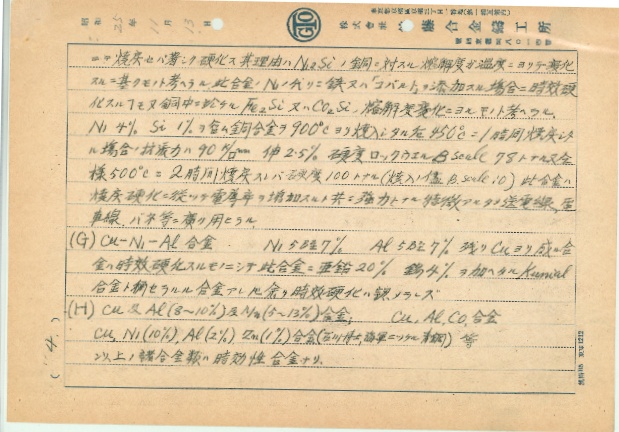 昭和 25 年 11 月 13 日
株式會社 藤合金鑄工所
ニテ焼戻セバ著シク硬化ス其理由ハ Ni2Si ノ銅ニ対スル溶解度ガ温度ニヨリテ変化
スルニ基クモノト考ヘラル, 此合金ノ Ni ノ代リニ鉄又ハ「コバルト」ヲ添加スル場合ニモ時效硬
化スルコトモ又銅中ニ於ケル Fe2Si 又ハ CO2Si ノ溶解度変化ニヨルモノト考ヘラル.
Ni 4% Si 1% ヲ含ム銅合金ヲ 900°C ヨリ焼入シタル後 450°C ニ 1時間焼戻シタ
ル場合ノ抗張力ハ 90 伸 2.5% 硬度ロックウエル B scale 98 トナル又仝
様 500°C ニ 2時間焼戻スレバ硬度 100 トナル (焼入ノ儘 B. scale 10) 此合金ハ
焼戻硬化ニ従ツテ電導率ヲ増加スルト共ニ強力トナル特徴アルタメ送電線, 電
車線, バネ等ニ廣ク用ヒラル
(G) Cu-Ni-Al 合金 Ni 5乃至7% Al 5乃至7% 残リ Cu ヨリ成ル合
金ハ時效硬化スルモノニシテ此合金ニ亜鉛 20% 錫 4% ヲ加ヘタル Kunial
合金ト稱セラルル合金アレ共余リ時效硬化ハ
(H) Cu & Al (8~10%) & Mn (5~13%) 合金, Cu, Al, Co, 合金
Cu, Ni (10%), Al (2%), Zn (1%) 合金 (古川博士, 海軍 ) 等
ハ以上ノ諸合金類ハ時効性合金ナリ.
( 4. )